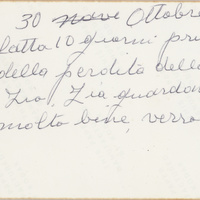 30 nove Ottobre
fatta 10 giorni pri
della perdita della
Zia, Zia guardan
molto bene, verso